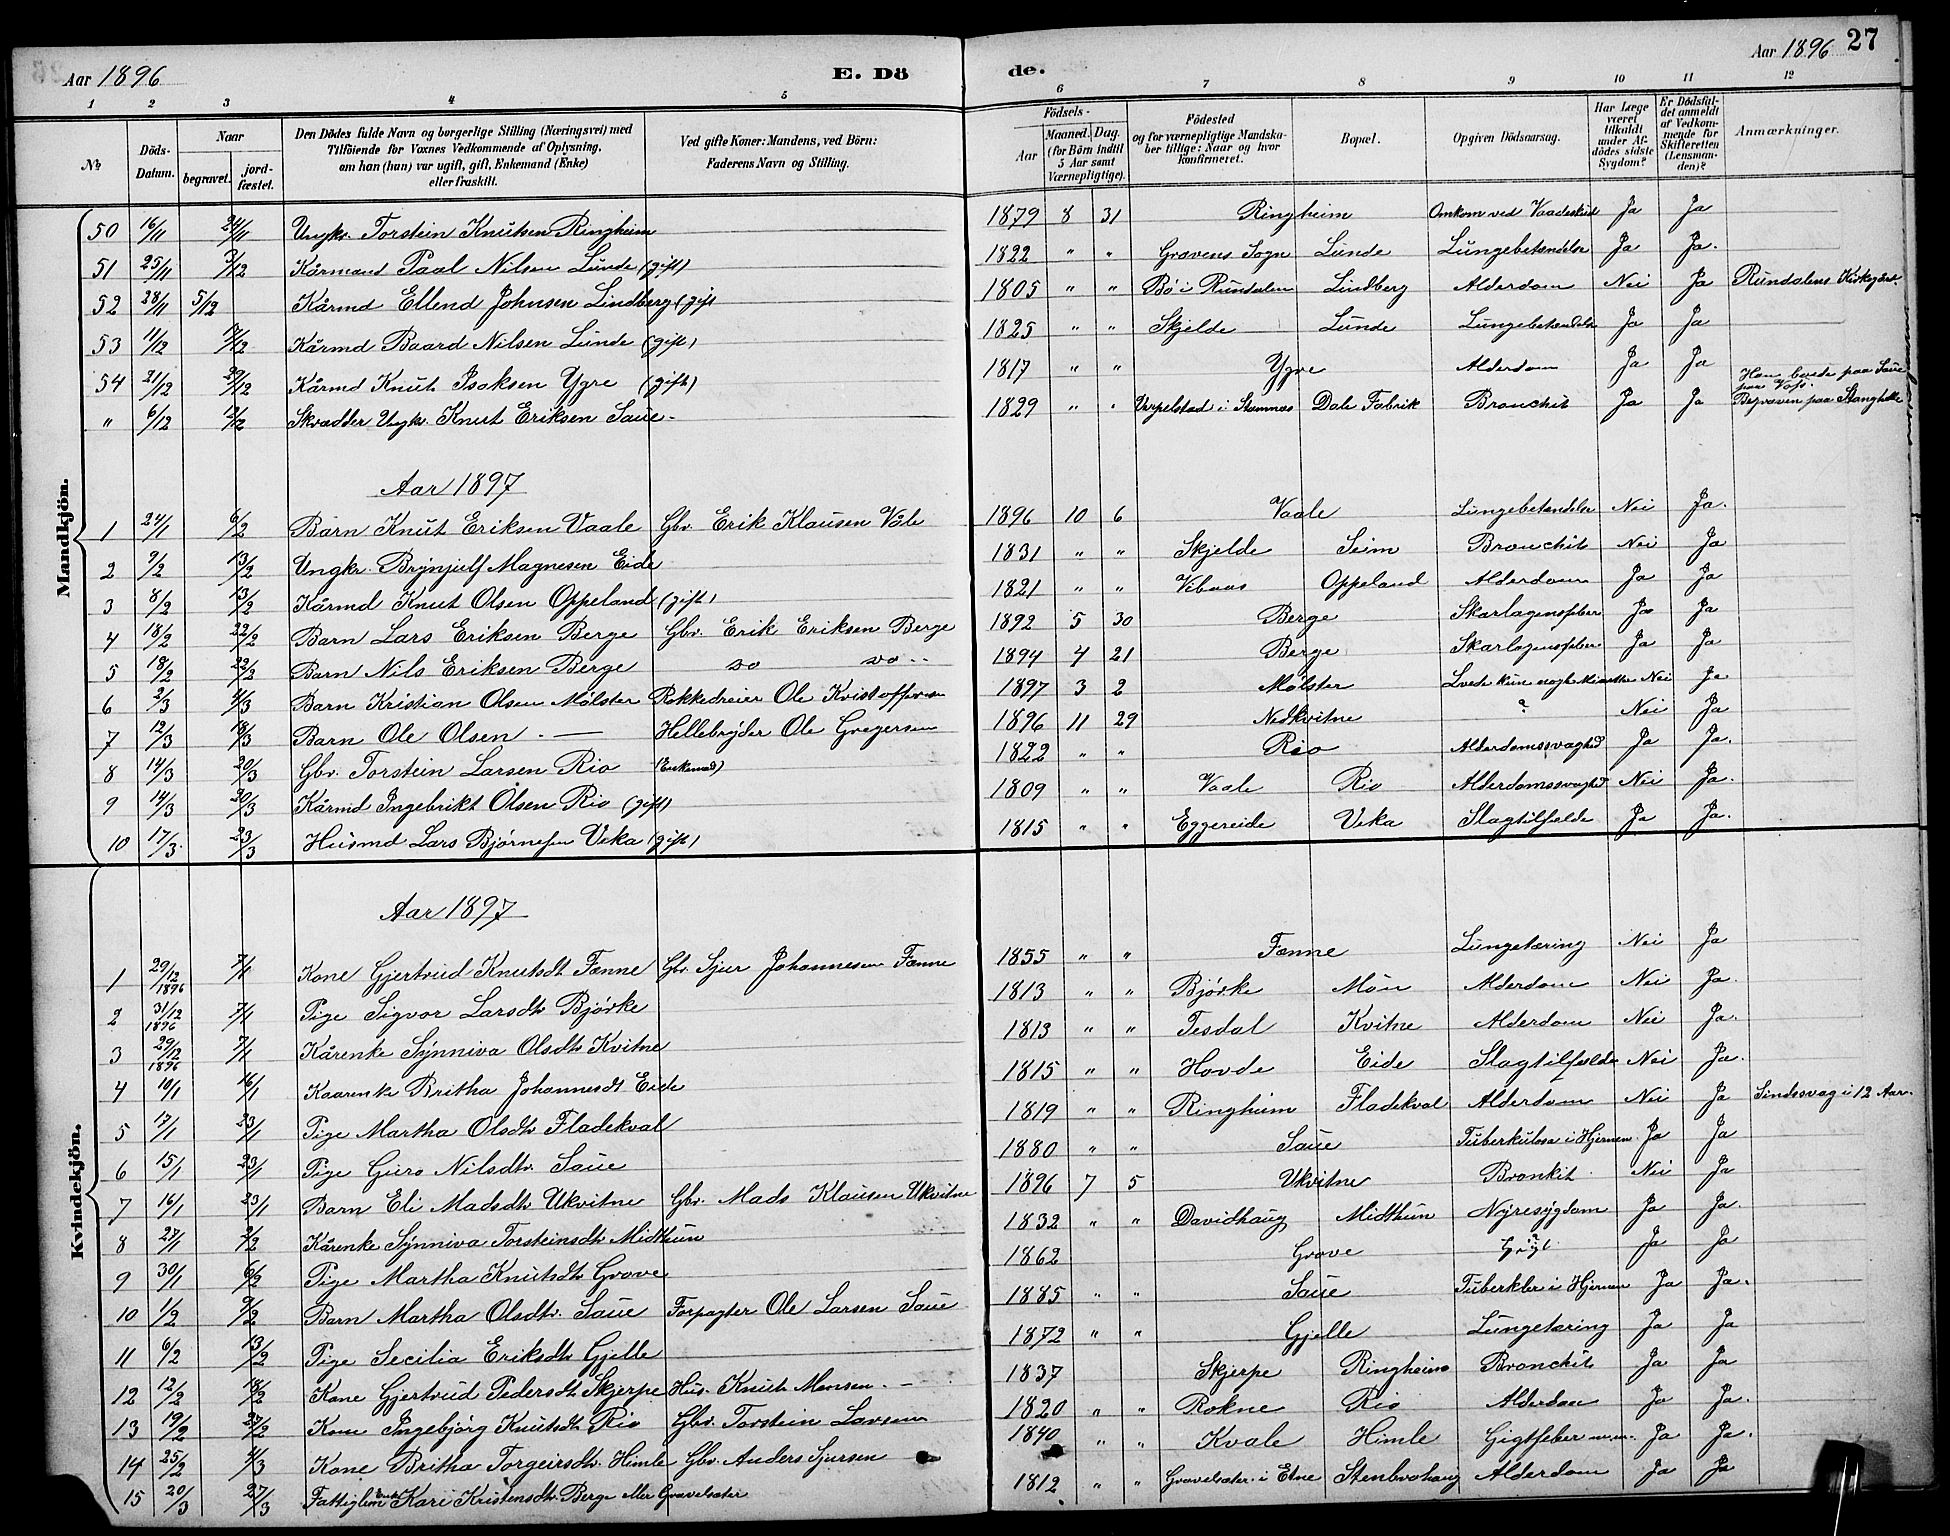 Aar 1896 E. Dö de. Aar 1896 27
1 2 3 4 5 6 7 8 9 10 11 12
№ Döds-Datum. Naar begravet. jord-fæstet. Den Dödes fulde Navn og borgerlige Stilling (Næringsvei) med Tilföiende for Voxnes Vedkommende af Oplysning, om han (hun) var ugift, gift, Enkemand (Enke) eller fraskilt. Ved gifte Koner: Mandens, ved Börn: Faderens Navn og Stilling. Födsels- Aar Maaned. Dag. (for Börn indtil 5 Aar samt Værnepligtige). Födested og for værnepligtige Mandskaber tillige: Naar og hvor konfirmeret. Bopæl. Opgiven Dödsaarsag. Har Læge været tilkaldt under Afdödes sidste Sygdom? Er Dödsfaldet anmeldt af Vedkommende for Skifteretten (Lensmanden)? Anmærkninger.
Mandkjön.
50 16/11 24/11 Ungkr. Torstein Knutsen Ringheim 1879 8 31 Ringheim Omkom ved Vaadeskud Ja Ja
51 25/11 3/12 Kårmand Paal Nilsen Lunde (gift) 1822 " " Gravens Sogn Lunde Lungebetændelse Ja Ja.
52 28/11 5/12 Kårmd Ellend Johnsen Lindberg (gift 1805 " " Bø i Rundalen Lindberg Alderdom Nei Ja Rundalens Kirkegård.
53 11/12 17/12 Kårmd Baard Nilsen Lunde (gift) 1825 " " Skjelde Lunde Lungebetændelse Ja Ja
54 21/12 29/12 Kårmd Knut Isaksen Ygre (gift) 1817 " " Ygre Alderdom Ja Ja
" 6/12 12/12 Skrædder Ungkr. Knut Eriksen Saue- 1829 " " i Stamnes Dale Fabrik Bronchit Ja Ja Han boede paa Saue paa Voss. Begraven paa Stanghelle
Aar 1897
1 24/1 6/2 Barn Knut Eriksen Vaale Gbr. Erik Klausen Våle 1896 10 6 Vaale Lungebetændelse Nei Ja.
2 9/2 13/2 Ungkr. Brynjulf Magnesen Eide 1831 " " Skjelde Seim Bronchit Nei Ja
3 8/2 13/2 Kårmd Knut Olsen Oppeland (gift) 1821 " " Vibaas Oppeland Alderdom Ja Ja
4 18/2 22/2 Barn Lars Eriksen Berge Gbr. Erik Eriksen Berge 1892 5 30 Berge Skarlagensfeber Ja Ja
5 18/2 22/2 Barn Nils Eriksen Berge do do 1894 4 21 Berge Skarlagensfeber Ja Ja
6 2/3 4/3 Barn Kristian Olsen Mølster Rokkedreier Ole Kristoffersen 1897 3 2 Mølster Levede kun nogle Minutter Nei Ja
7 12/3 18/3 Barn Ole Olsen - — Hellebryder Ole Gregersen 1896 11 29 Nedkvitne ? Nei Ja
8 14/3 20/3 Gbr. Torstein Larsen Rio (Enkemd) 1822 " " Rio Alderdomssvaghed Ja Ja.
9 14/3 20/3 Kårmd Ingebrikt Olsen Rio (gift) 1809 " " Vaale Rio Alderdomssvaghed Nei Ja.
10 17/3 23/3 Husmd Lars Bjørnesen Veka (gift) 1815 " " Eggereide Veka Slagtilfælde Ja Ja.
Kvindekjön.
Aar 1897
1 29/12 1896 7/1 Kone Gjertrud Knutsdt. Fænne Gbr. Sjur Johannesen Fænne 1855 " " Fænne Lungetæring Nei Ja
2 31/12 1896 7/1 Pige Sigvor Larsdtr Bjørke 1813 " " Bjørke Møn Alderdom Nei Ja.
3 29/12 1896 7/1 Kårenke Synniva Olsdtr Kvitne 1813 " " Tesdal Kvitne Alderdom Nei Ja.
4 10/1 16/1 Kaarenke Britha Johannesdt Eide 1815 " " Hovde Eide Slagtilfælde Nei Ja.
5 17/1 23/1 Pige Martha Olsdtr Fladekval 1819 " " Ringheim Fladekval Alderdom Nei Ja Sindssvag i 12 Aar.
6 15/1 23/1 Pige Guro Nilsdtr. Saue 1880 " " Saue Tuberkulose i Hjernen Ja Ja
7 16/1 23/1 Barn Eli Madsdtr Ukvitne Gbr. Mads Klausen Ukvitne 1896 7 5 Ukvitne Bronkit Nei Ja
8 27/1 2/2 Kårenke Synniva Torsteinsdtr Midthun 1832 " " Davidhaug Midthun Nyresygdom Ja Ja.
9 30/1 6/2 Pige Martha Knutsdtr Grove 1862 Grove Ja Ja
10 1/2 9/2 Barn Martha Olsdtr. Saue Forpagter Ole Larsen Saue 1885 " " Saue Tuberkler i Hjernen Ja Ja.
11 6/2 13/2 Pige Secilia Eriksdtr Gjelle 1872 " " Gjelle Lungetæring Ja Ja
12 12/2 18/2 Kone Gjertrud Pedersdtr Skjerpe Hus. Knut Monsen - — 1837 Skjerpe Ringheim Bronchit Ja Ja
13 19/2 27/2 Kone Ingebjörg Knutsdtr Rio Gbr. Torstein Larsen 1820 " " Rokne Rio Alderdom Ja Ja.
14 25/2 4/3 Kone Britha Torgeirsdtr. Himle Gbr. Anders Sjursen 1840 " " Kvale Himle Gigtfeber m.m. Ja Ja.
15 20/3 27/3 Fattiglem Enke Kari Kristensdtr. Berge eller Gravelsæter 1812 " " Gravelsæter i Etne Stenbrohaug Alderdom Ja Ja